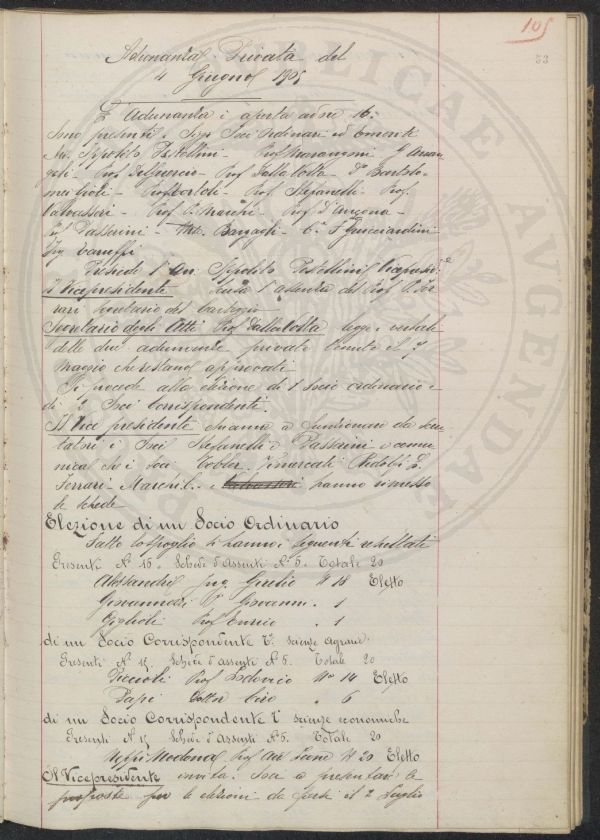 105
53
Adunanza Privata del
4 Giugno 1905
L' Adunanza è aperta ad ore 16.
Sono presenti i Sigri Soci Ordinari ed Emeriti
Av. Ippolito Pestellini - Prof Marangoni G Arcan-
geli - Prof. Del Guercio - Prof Dalla Volta - Dr Bartolo-
mei Gioli - Prof Bertoli - Prof Stefanelli - Prof.
Valvassori - Prof P. Marchi - Prof D'Ancona -
Prof Passerini - March. Bargagli - C. F Guicciardini
Ing Vannuffi
Presiede l'Av. Ippolito Pestellini
Il Vicepresidente scusa l'assenza del Prof P. Fer-
rari Segretario del carteggio
Segretario degli Atti Prof Dalla Volta legge i verbali
delle due adunanze private tenute il 7
Maggio che restano approvati
Si procede alla elezione di 1 Socio ordinario e
di 2 Soci Corrispondenti.
Il Vice presidente chiama a funzionare da scru-
tatori i Soci Stefanelli e Passerini e comu-
nica che i Soci Tobler. Ridolfi L.
Ferrari - Marchi L. e Valvassori hanno rimesso
le schede
Elezione di un Socio Ordinario
Fatto lo spoglio si hanno i seguenti resultati
Presenti No 15. Schede d'Assenti No 5. Totale 20
Alessandri No 18 Eletto
Giovannozzi P. Giovanni. 1
Giglioli Prof Enrico . 1
di un Socio Corrispondente Pr. scienze Agrarie
Presenti No 15. Schede d'assenti No 5. Totale 20
Piccioli Prof Lodovico No 14 Eletto
Papi Dottor Ciro . 6
di un Socio Corrispondente Pr scienze economiche
Presenti No 15 Schede d'Assenti No 5. Totale 20
Modona Prof Av. Leone No 20 Eletto
Il Vicepresidente invita i Soci a presentare le
proposte per le elezioni da farsi il 2 Luglio